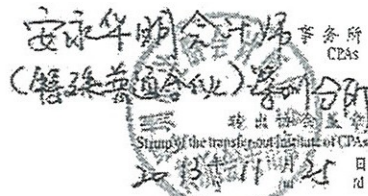 安永华明会计师事务所
CPAs
(特殊普通合伙)深圳分所
转出协会盖章
Stamp of the transfer-out Institute of CPAs
2013年11月25日